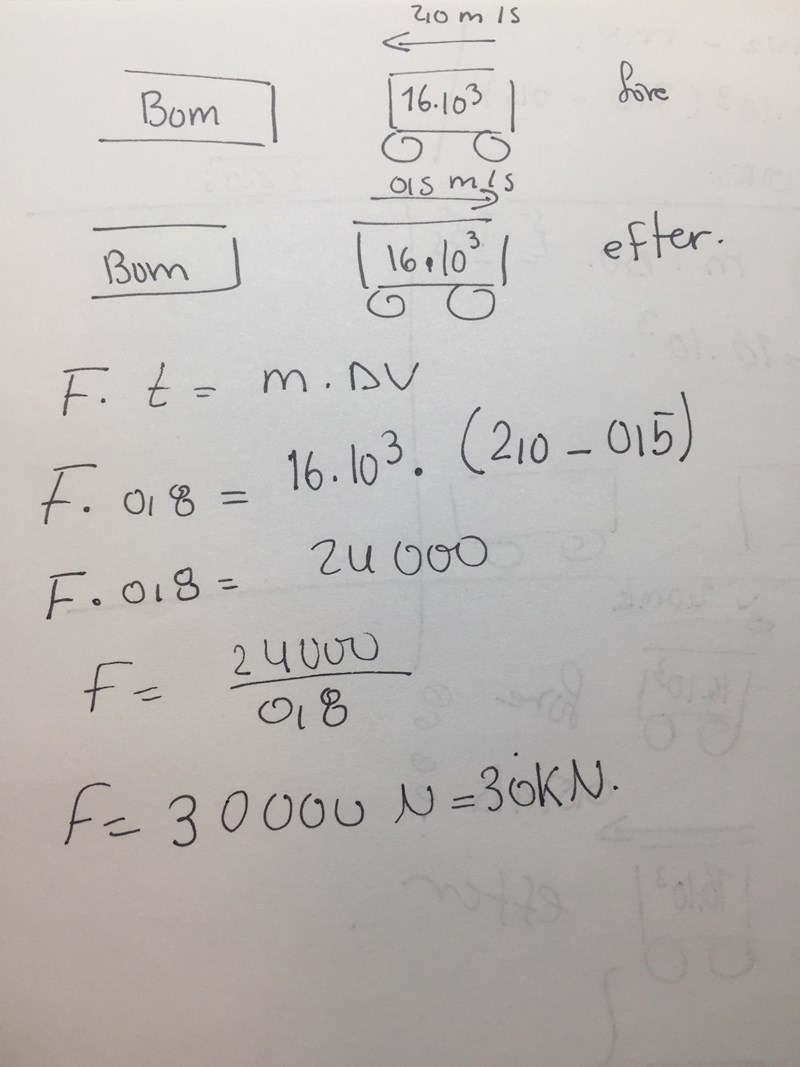 2,0 m/s
Bom 16.10³ före
0,5 m/s
Bom 16.10³ efter.
F. t = m. ΔV
F. 0,8 = 16.10³. (2,0 - 0,5)
F. 0,8 = 24000
F = 24000 / 0,8
F = 30000 N = 30KN.